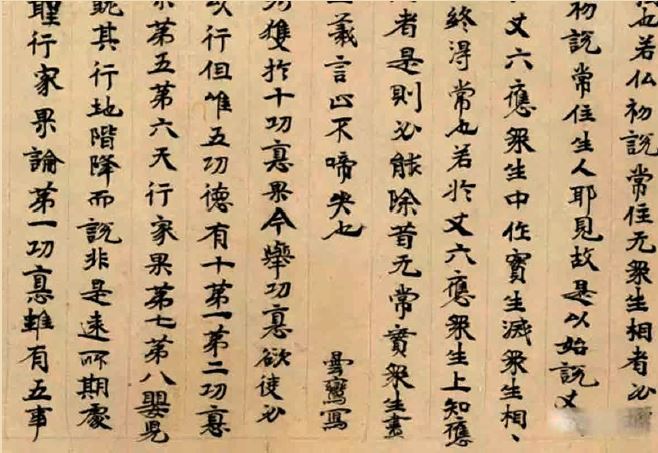 也若仏初說常住无眾生相者必
初說常住生人耶見故是以始說丈
丈六應眾生中作實生滅眾生相、
終得常也若於丈六應眾生上知應
者是則必能除昔无常實眾生畫
義言止不啼失也 曇鸞寫
獲於十功惪果今舉功惪欲使必
以行但唯五功德有十第一第二功惪
第五第六天行家果第七第八嬰児
其行地階降而說非是遠所期處
聖行家果論第一功惪雖有五事